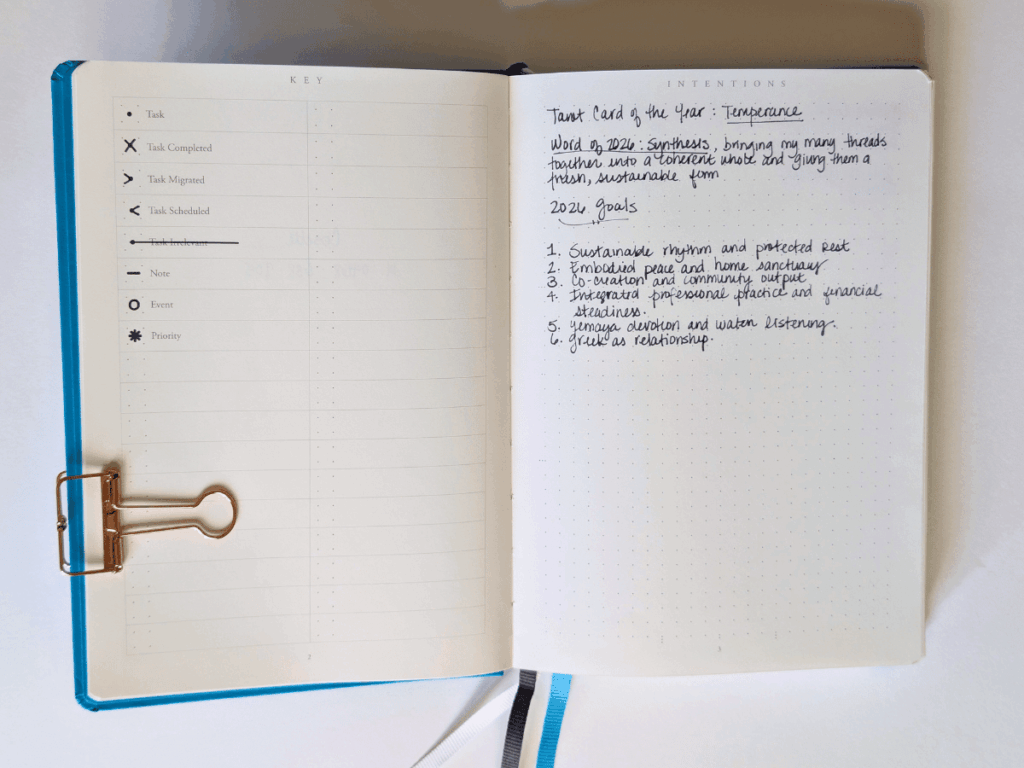 KEY
Task
Task Completed
Task Migrated
Task Scheduled
Task Irrelevant
Note
Event
Priority
2
INTENTIONS
Tarot Card of the Year : Temperance
Word of 2026 : Synthesis, bringing my many threads
together into a coherent whole and giving them a
fresh, sustainable form
2026 goals
1. Sustainable rhythm and protected rest
2. Embodied peace and home sanctuary
3. Co-creation and community output
4. Integrated professional practice and financial
steadiness.
5. Yemaya devotion and water listening.
6. Greek as relationship.
3